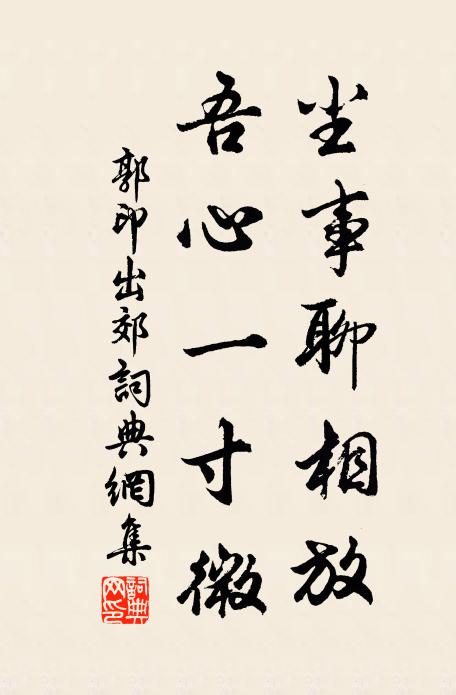 尘事聊相放
吾心一寸微
郭印出郊詞典網集
詞典网印